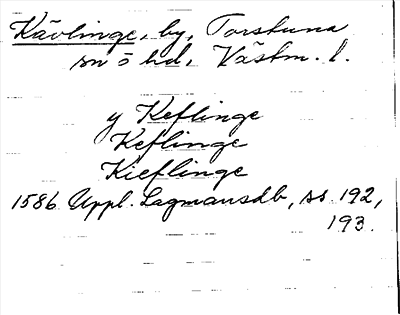 Kävlinge, by, Torstuna
sn o hd, Västm. l.
y Keflinge
Keflinge
Kieflinge
1586 Uppl. Lagmansdb, ss. 192,
193.